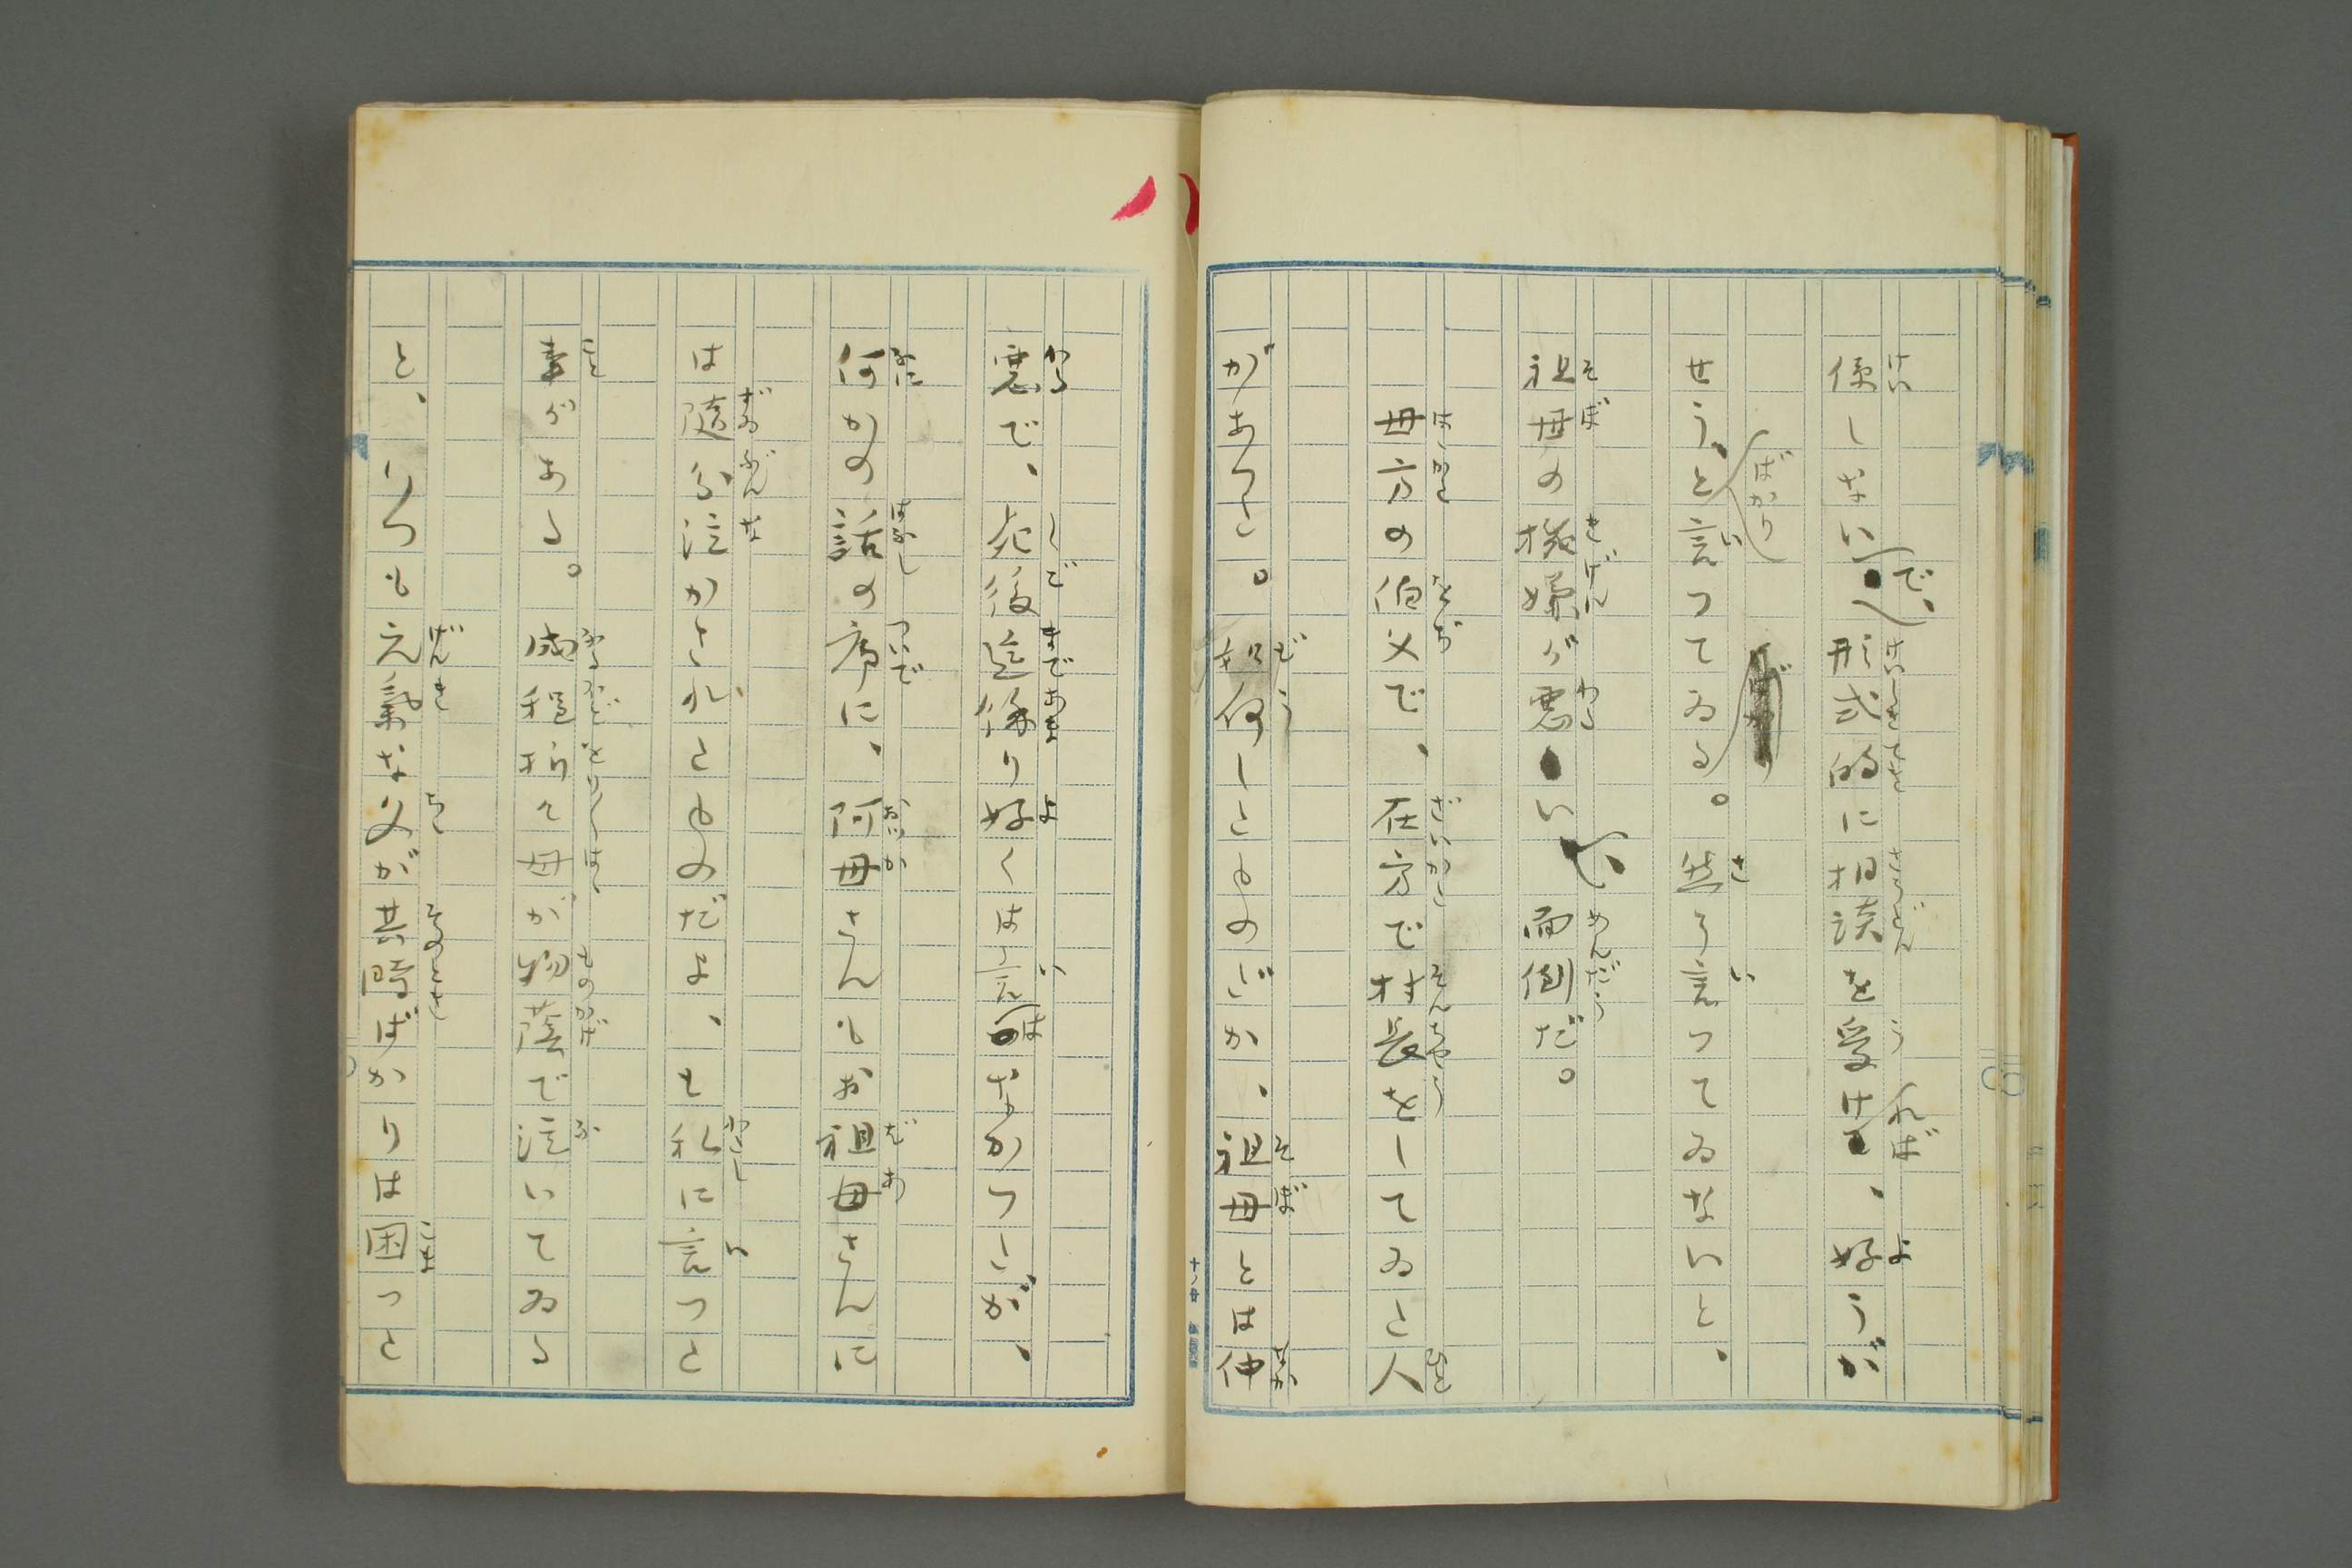 係しないで、形式的に相談を受ければ、好うが
せう、と言つてゐるばかり。然う言つてゐないと、
祖母の機嫌が悪いや、面倒だ。
母方の伯父で、在方で村長をしてゐた人
があつた。如何したものだか、祖母とは仲
悪で、死後迄余り好くは言はなかつたが、
何かの話の序に、阿母さんもお祖母さんに
は随分泣かされたものだよ、と私に言つた
事がある。成程折々母が物蔭で泣いてゐる
と、いつも元気な父が其時ばかりは困つた